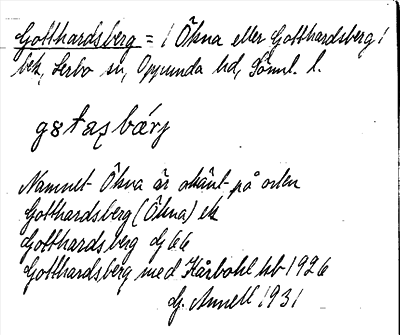 Gotthardsberg = (Ökna eller Gotthardsberg)
bek, Lerbo sn, Oppunda hd, Söml. l.
Namnet Ökna är okänt på orten
Gotthardsberg (Ökna) ek
Gotthardsberg Gj 66
Gotthardsberg med Kårbohl hb 1926
G. Annell 1931